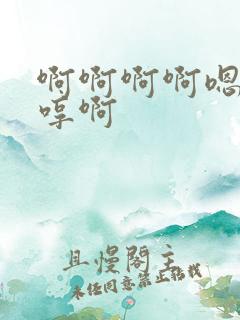 啊啊啊啊嗯
哼啊
且慢閣主
未经同意禁止转载